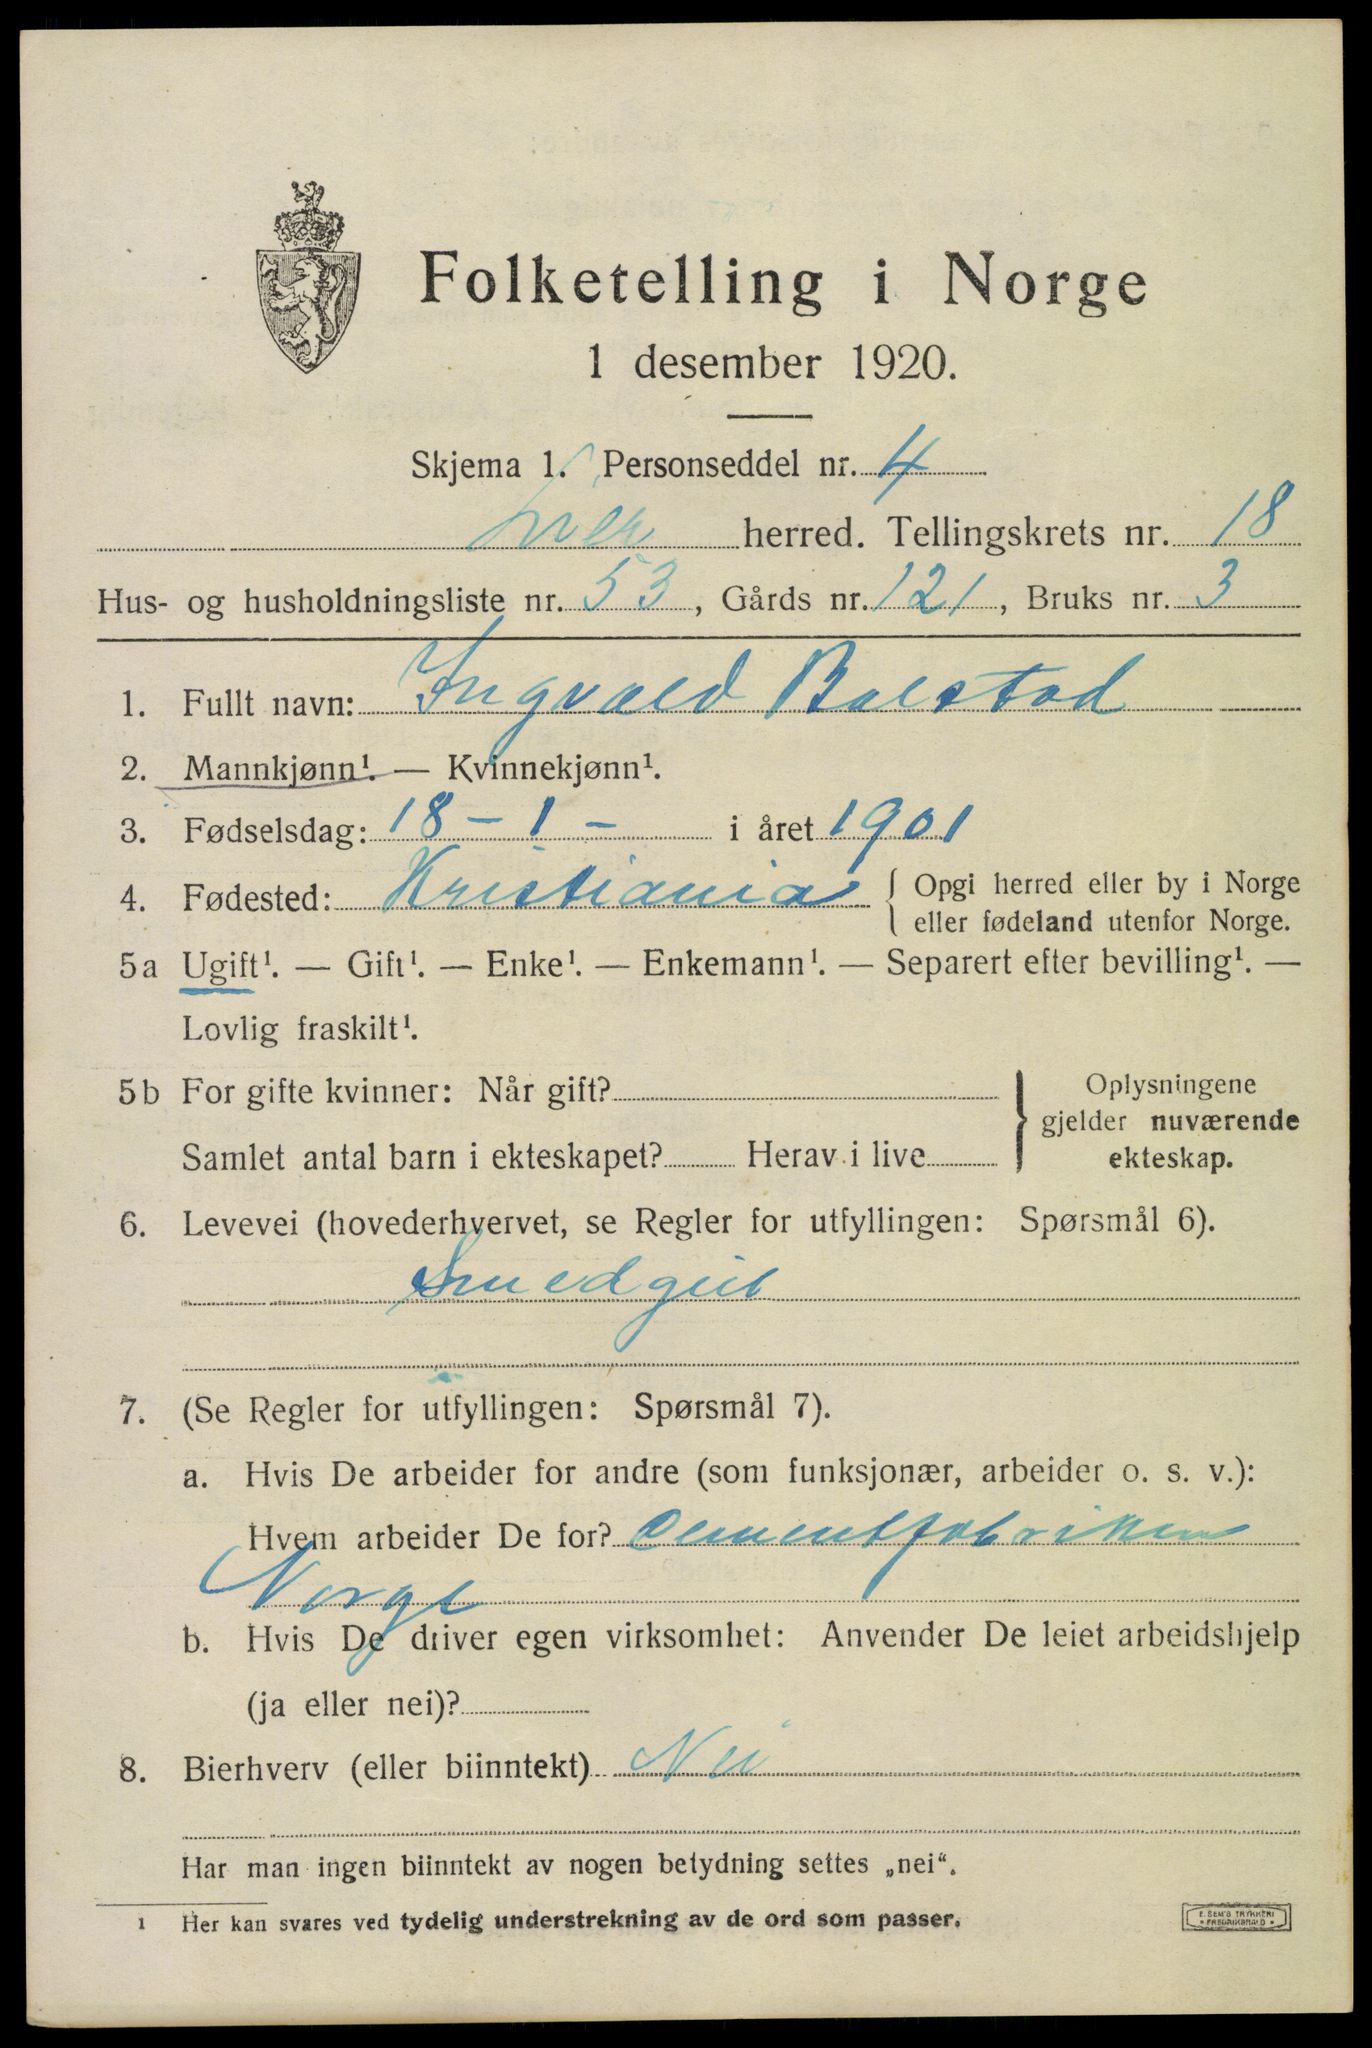 Folketelling i Norge
1 desember 1920.
Skjema 1. Personseddel nr. 4
Lier herred. Tellingskrets nr. 18
Hus- og husholdningsliste nr. 53, Gårds nr. 121, Bruks nr. 3
1. Fullt navn: Ingvald Bolstad
2. Mannkjønn¹. — Kvinnekjønn¹.
3. Fødselsdag: 18 - 1 - i året 1901
4. Fødested: Kristiania { Opgi herred eller by i Norge
eller fødeland utenfor Norge.
5a Ugift¹. — Gift¹. — Enke¹. — Enkemann¹. — Separert efter bevilling¹. —
Lovlig fraskilt¹.
5b For gifte kvinner: Når gift? } Oplysningene
gjelder nuværende
Samlet antal barn i ekteskapet? Herav i live ekteskap.
6. Levevei (hovederhvervet, se Regler for utfyllingen: Spørsmål 6).
Smedgut
7. (Se Regler for utfyllingen: Spørsmål 7).
a. Hvis De arbeider for andre (som funksjonær, arbeider o. s. v.):
Hvem arbeider De for? Cementfabriken
Norge
b. Hvis De driver egen virksomhet: Anvender De leiet arbeidshjelp
(ja eller nei)?
8. Bierhverv (eller biinntekt) Nei
Har man ingen biinntekt av nogen betydning settes „nei“.
¹ Her kan svares ved tydelig understrekning av de ord som passer.
E. SEM'S TRYKKERI
FREDRIKSHALD